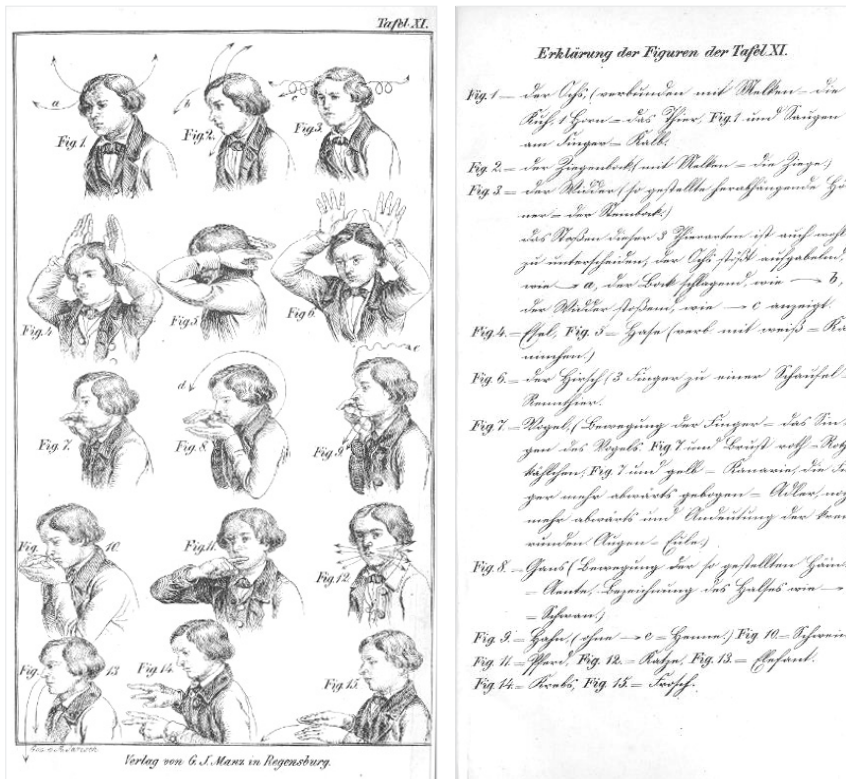 Tafel XI.
a
b
c
Fig. 1.
Fig. 2.
Fig. 3.
Fig. 4
Fig. 5
Fig. 6.
d
e
Fig. 7.
Fig. 8.
Fig. 9.
Fig. 10.
Fig. 11.
Fig. 12.
Fig. 13
Fig. 14.
Fig. 15.
Verlag von G. J. Manz in Regensburg.
Erklärung der Figuren der Tafel XI.
Fig. 1 — der Ochs, (verbunden mit Melken = die
Kuh, 1 Horn = das Thier, Fig. 1 und Saugen
am Finger = Kalb.
Fig. 2. = der Ziegenbock (mit Melken = die Ziege.)
Fig. 3 = der Widder (so gestellte herabhängende Hör
ner = der Steinbock.)
das Stoßen dieser 3 Thierarten ist auch wohl
zu unterscheiden, der Ochs stößt aufgabelnd,
wie → a, der Bock schlagend, wie → b,
der Widder stoßend, wie → c anzeigt.
Fig. 4. = Esel, Fig. 5 = Hase (verb. mit weiß = Ka
ninchen.)
Fig. 6. = der Hirsch (3 Finger zu einer Schaufel =
Rennthier.
Fig. 7. = Vogel, (Bewegung der Finger = das Sin
gen des Vogels. Fig. 7 und Brust roth = Rotk
kählchen, Fig. 7 und gelb = Kanarie, die Fin
ger mehr abwärts gebogen = Adler, noch
mehr abwärts und Andeutung der
runden Augen = Eule.)
Fig. 8. = Gans (Bewegung der so gestellten Hän
= Aente, Bezeichnung des Halses wie →
= Schwan.)
Fig. 9. = Hahn, (ohne → e = Henne.) Fig. 10. = Schwein
Fig. 11. = Pferd, Fig. 12. = Katze, Fig. 13. = Elefant.
Fig. 14. = Krebs, Fig. 15. = Frosch.